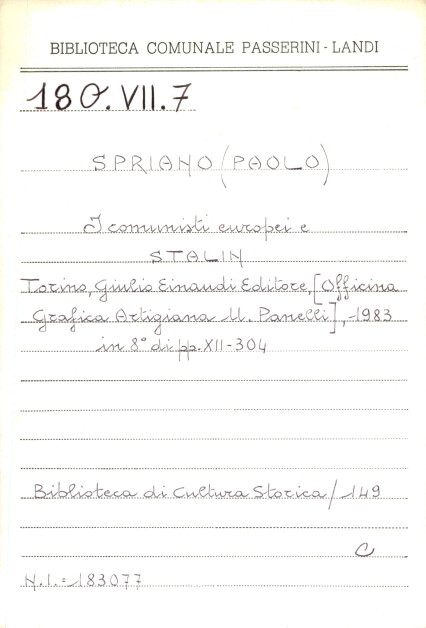 BIBLIOTECA COMUNALE PASSERINI - LANDI
180.VII.7
SPRIANO (PAOLO)
I comunisti europei e
STALIN
Torino, Giulio Einaudi Editore, [Officina
Grafica Artigiana U. Panelli], 1983
in 8° di pp. XII-304
Biblioteca di Cultura Storica / 149
C
N.I.= 183077